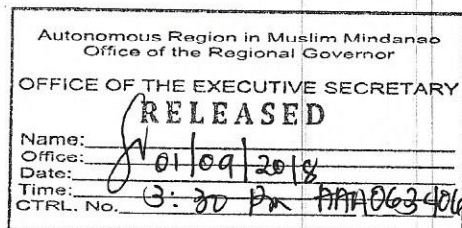 Autonomous Region in Muslim Mindanao
Office of the Regional Governor
OFFICE OF THE EXECUTIVE SECRETARY
RELEASED
Name:
Office:
Date: 01/09/2018
Time: 3:30 Pm
CTRL. No.